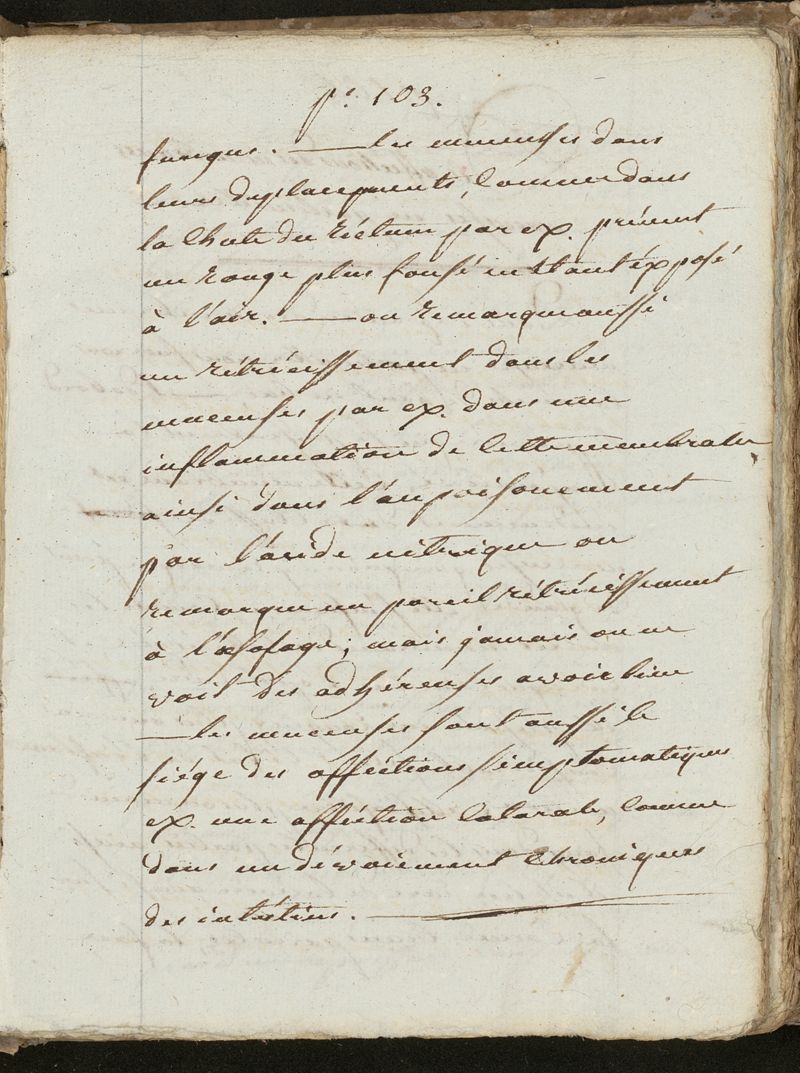 p.e 103.
fongus. — les muceuses dans
leurs deplacements, comme dans
la chute du réctum par ex. prénent
un rouge plus fonsé en étant éxposé
à l'air. — on remarque aussi
un rétrécissement dans les
muceuses par ex. dans une
inflammation de cette membrane
ainsi dans l'anpoisonement
par l'aside nitrique on
remarque un pareil rétrécissement
à l'ésofage; mais jamais on ne
voit des adhérenses avoir lieu
— les muceuses sont aussi le
siége des afféctions simptomatiques
ex. une afféction catarale, comme
dans un dévoiement chroniques
des intéstins. —